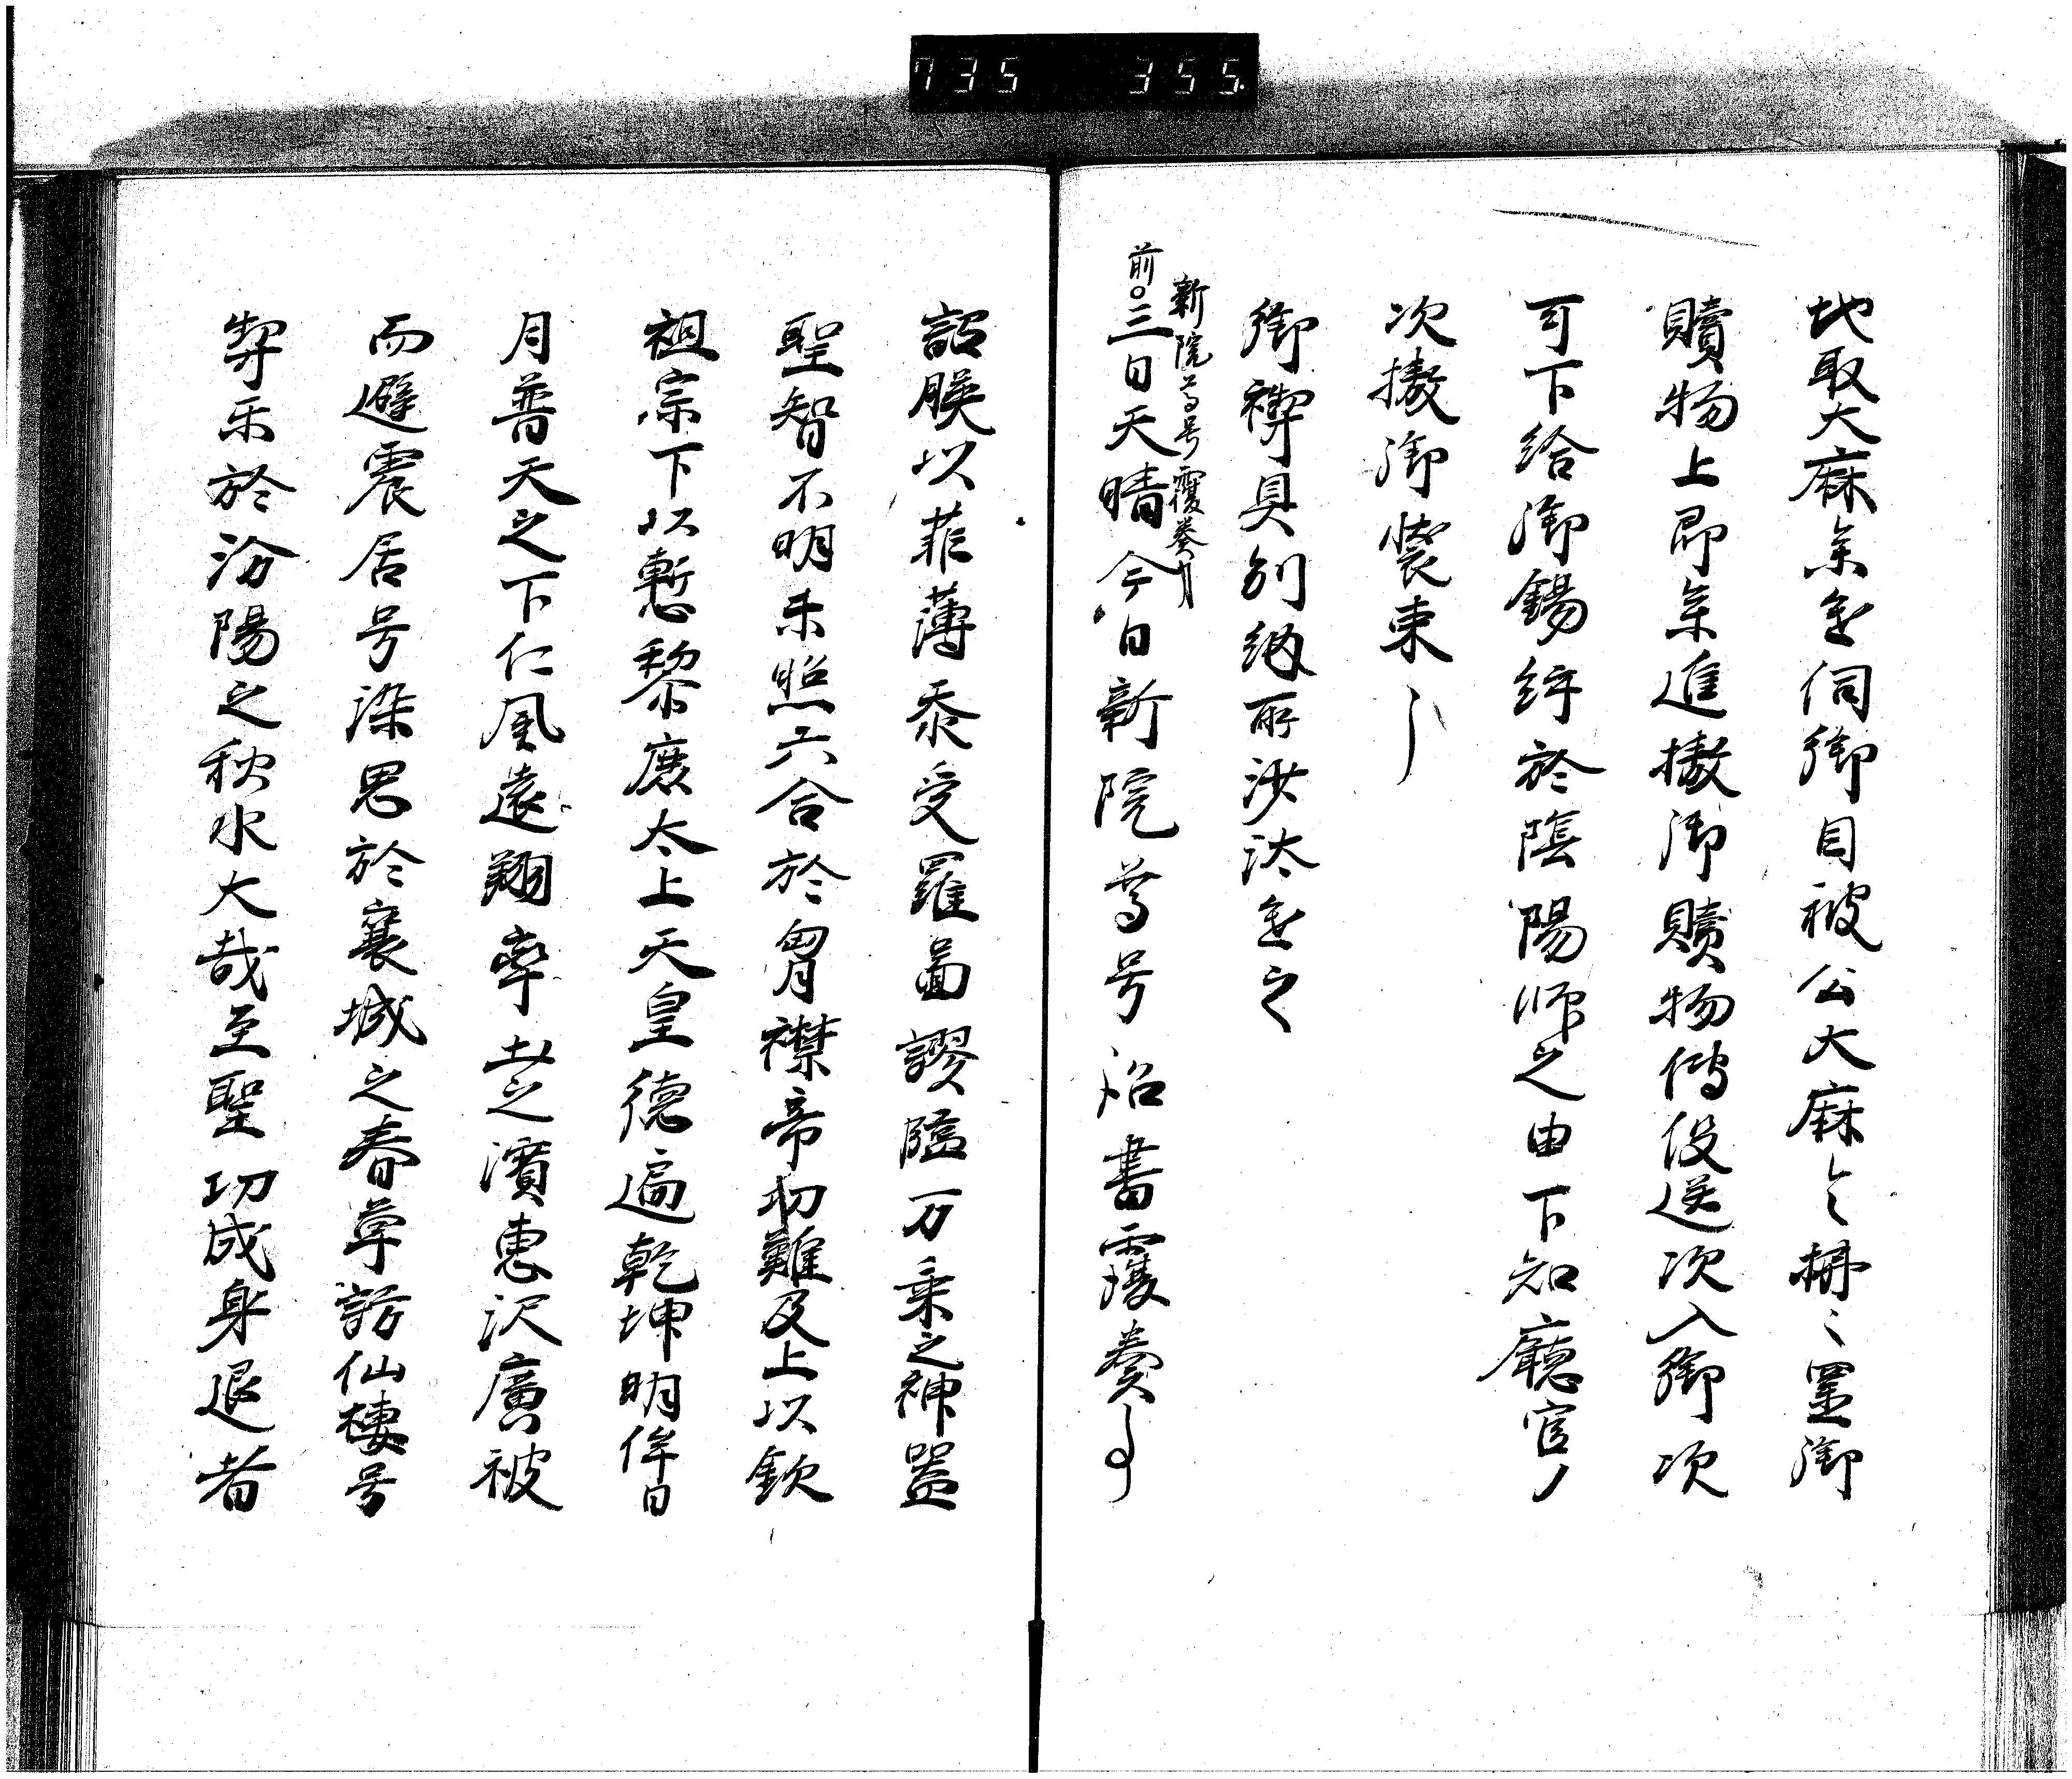 735 355
地取大麻参進伺御目被公大麻令掃々置御
贖物上即参進撤御贖物傳役送次入御次
可下給御錫紵於陰陽師之由下知廳官
次撤御裝束
御禊具別納所沙汰進之
新院尊号覆奏
前三日天晴今日新院尊号詔書覆奏
詔朕以菲薄忝受羅啚謬臨万乗之神器
聖智不明未照六合於胷襟帝切難及上以欽
祖宗下以慙黎庶太上天皇德遍乾坤明侔日
月普天之下仁風遠翔率土之濱恵沢廣被
而避震居号染思於襄城之春草訪仙棲号
契乐於汾陽之秋水大哉至聖功成身退者